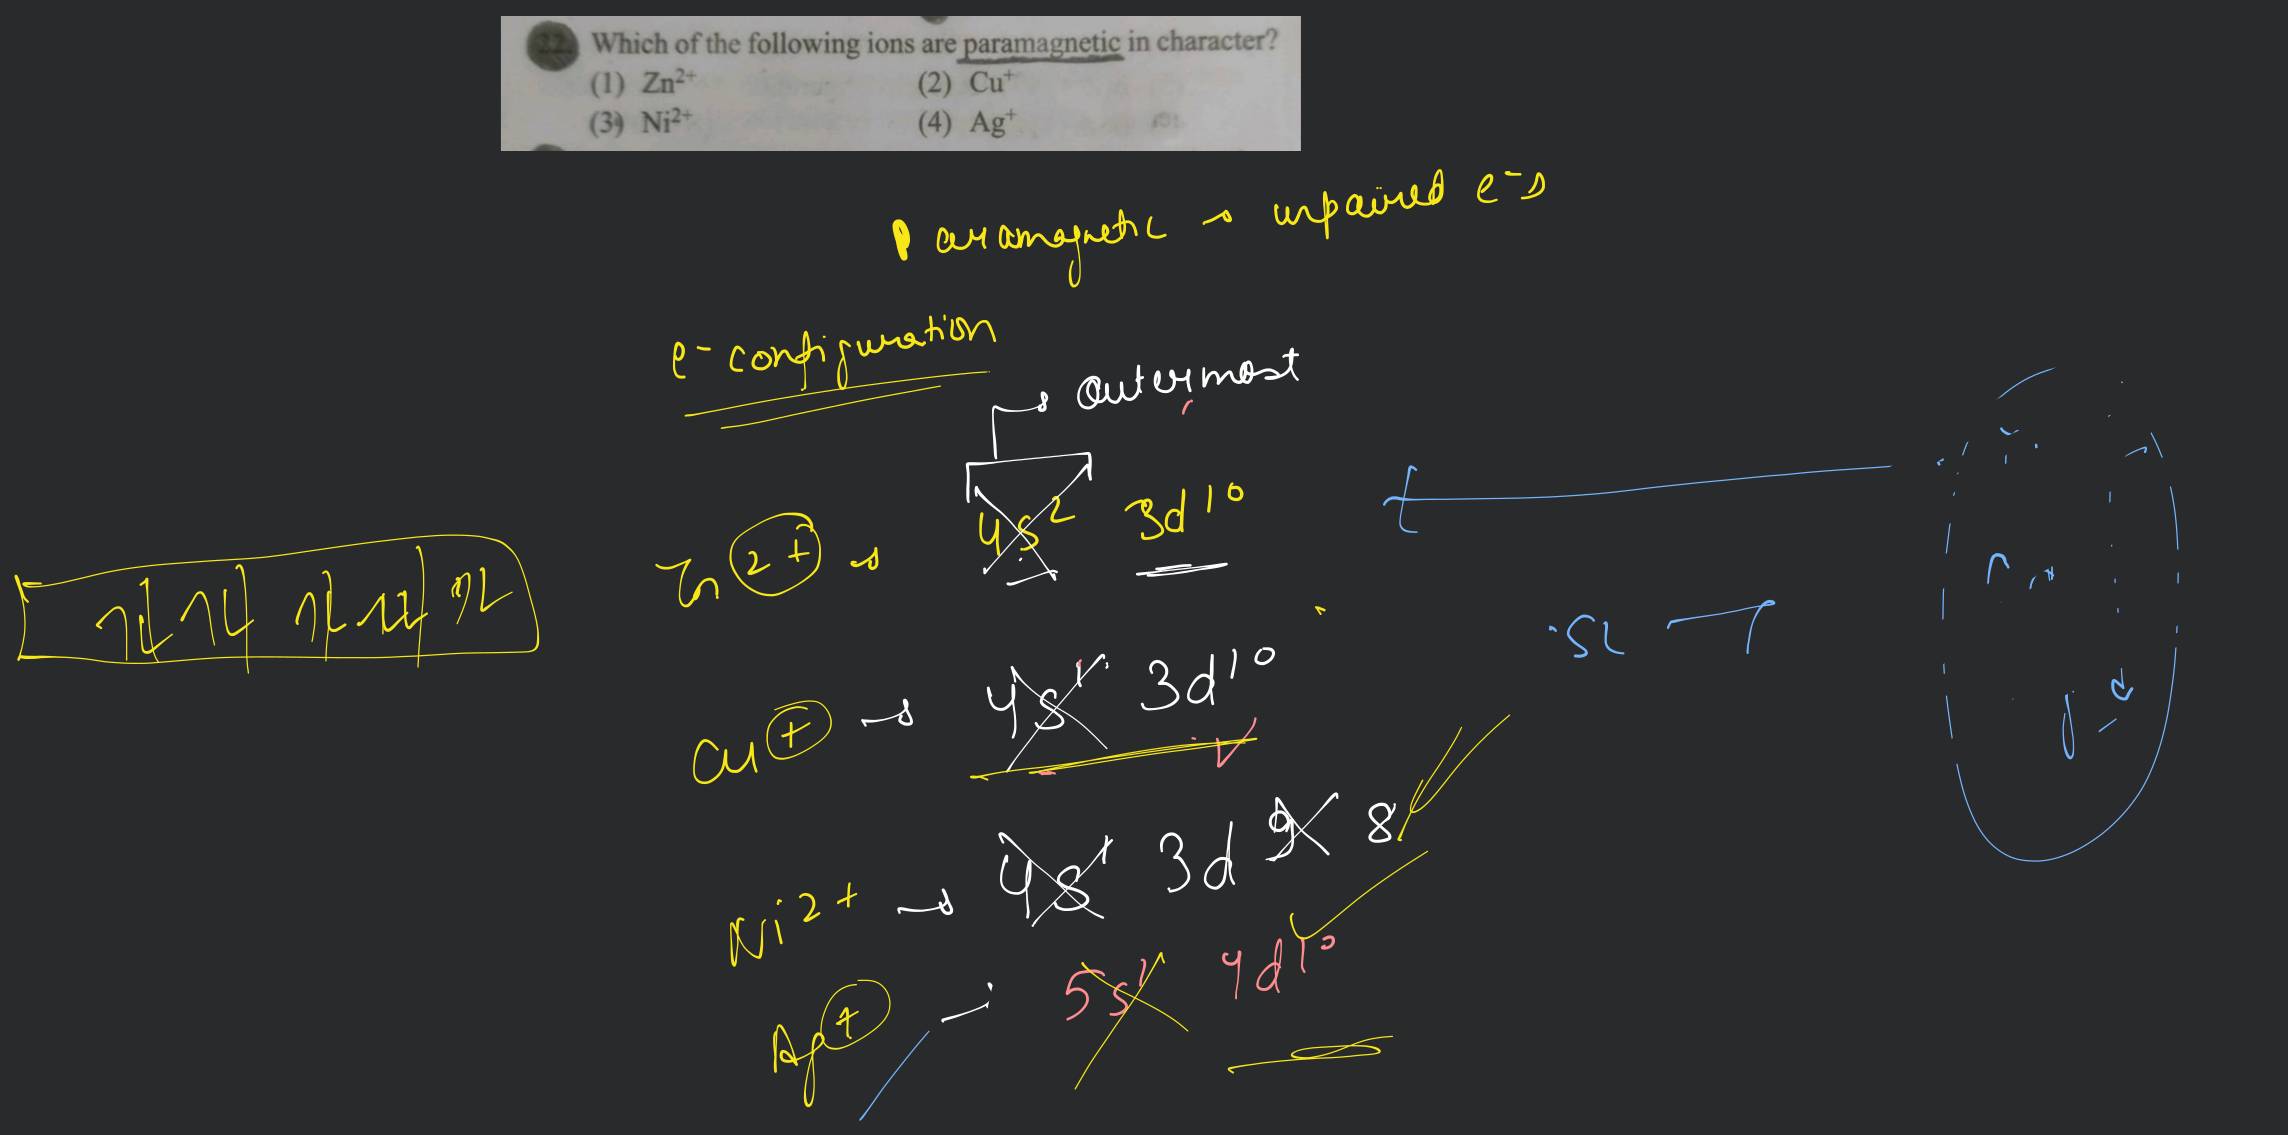 22. Which of the following ions are paramagnetic in character?
(1) Zn²⁺ (2) Cu⁺
(3) Ni²⁺ (4) Ag⁺
Paramagnetic → unpaired e⁻s
e⁻ configuration
→ outermost
Zn²⁺ → 4s² 3d¹⁰
Cu⁺ → 4s¹ 3d¹⁰
Ni²⁺ → 4s¹ 3d⁹ 8
Ag⁺ → 5s¹ 4d¹⁰